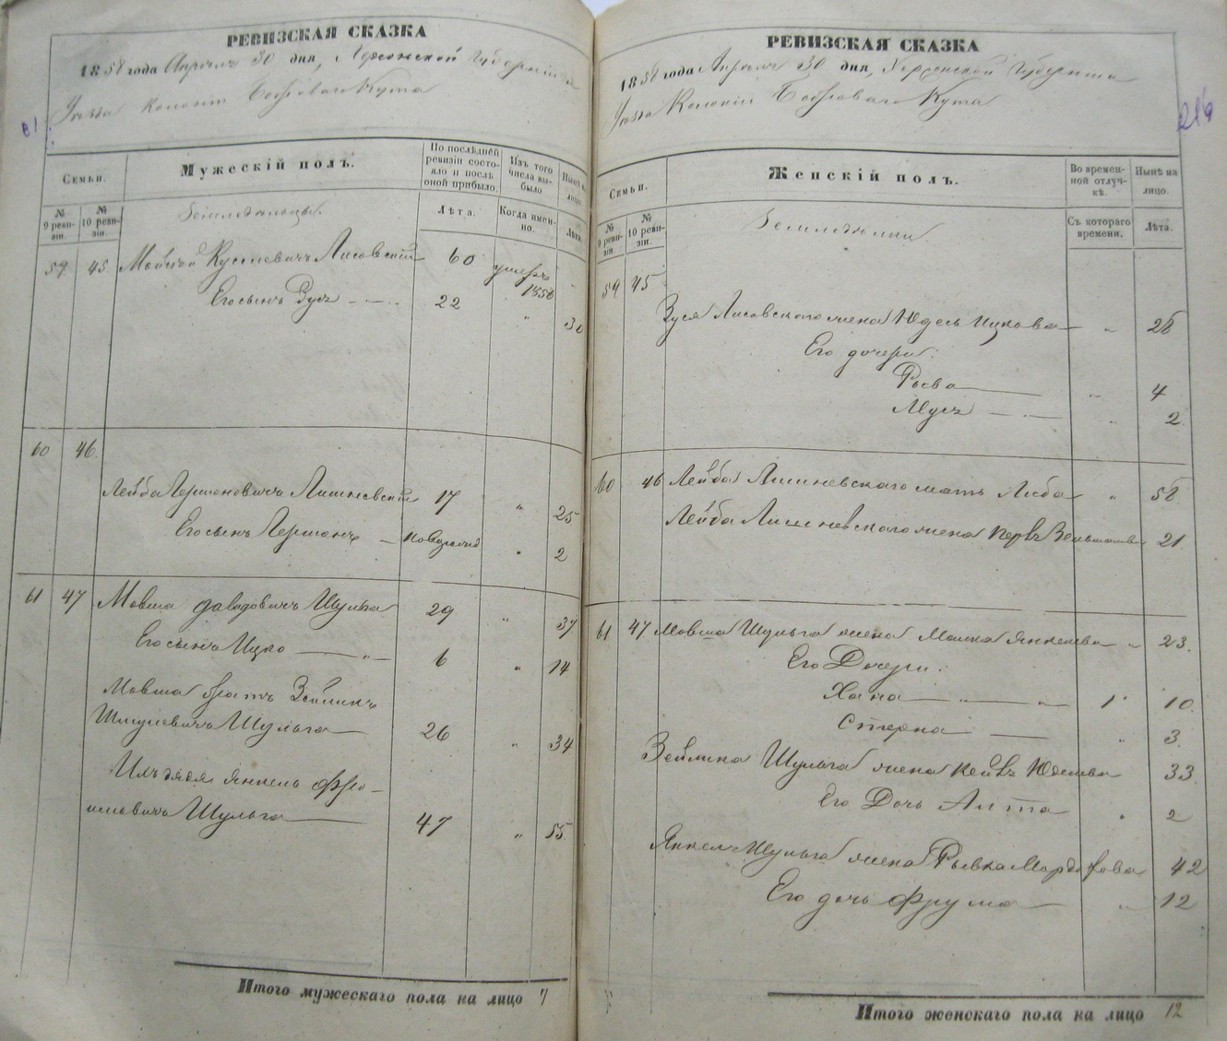 РЕВИЗСКАЯ СКАЗКА
1858 года Апреля 30 дня, Херсонской Губернии
Уезда Колоніи Бобровагокута
81
Семьи.
Мужескій полъ.
По послѣдней ревизіи состояло и послѣ оной прибыло.
Изъ того числа выбыло
Нынѣ на лицо.
№ 9 ревизіи.
№ 10 ревизіи.
Лѣта.
Когда именно.
Лѣта.
Земледѣльцы.
59 45 Лисовскій 60 умеръ 1856
Его сынъ Зусь 22 " 30
60 46
Лейба Гершоновичъ Лишневскій 17 " 25
Его сынъ Гершонъ новорожд " 2
61 47 Мовша Давидовичъ Шульга 29 " 37
Его сынъ Ицко " 6 " 14
Мовша братъ Зейликъ
Шмулевичъ Шульга 26 " 34
Ихъ дядя Янкель Фро-
имовичъ Шульга 47 " 55
Итого мужескаго пола на лицо 7
РЕВИЗСКАЯ СКАЗКА
1858 года Апреля 30 дня, Херсонской Губерніи
Уезда Колоніи Бобровагокута
216
Семьи.
Женскій полъ.
Во временной отлучкѣ.
Нынѣ на лицо.
№ 9 ревизіи.
№ 10 ревизіи.
Съ котораго времени.
Лѣта.
59 45
Зуся Лисовскаго жена Юдесь Ицкова " 28
Его дочери:
Рыва " 4
Муся " 2
60 46 Лейба Лишневскаго мать Либа " 58
Лейба Лишневскаго жена 21
61 47 Мовша Шульга жена Малка Янкелева " 23.
Его Дочери:
Хана " " 1 10
Стерна " 3.
Зейлика Шульга жена 33
Его Дочь " 2
Янкель Шульга жена Рывка Мордкова 42
Его дочь Фрума " 12
Итого женскаго пола на лицо 12